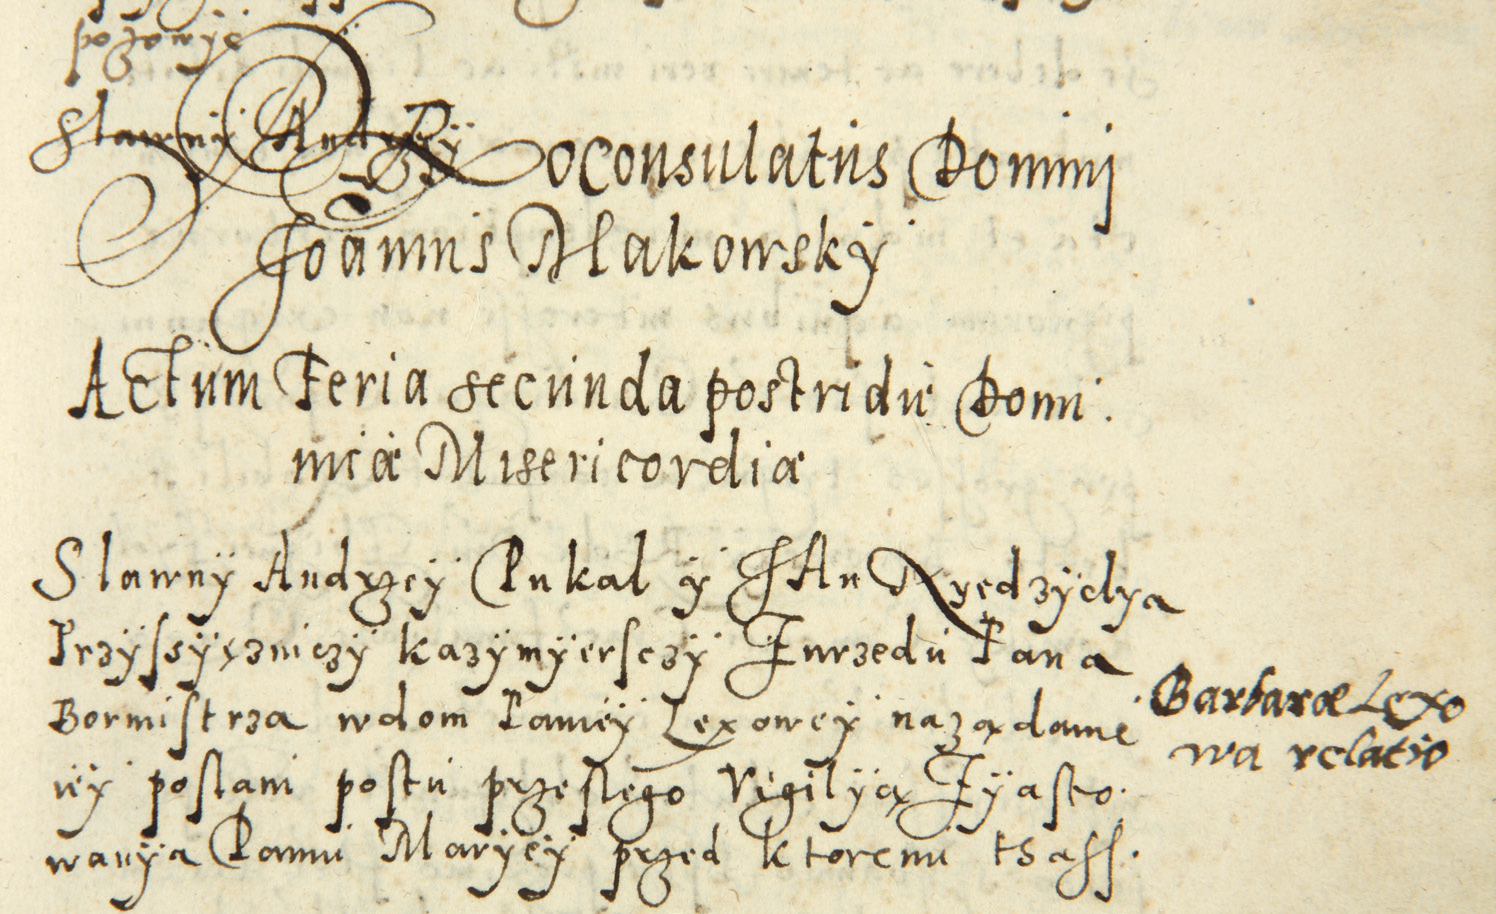 pozowye
Slawnÿ Andrzeÿ
Proconsulatus Dominj
Joannis Makowskÿ
Actum Feria secunda postridie Domi
nicæ Misericordiæ
Slawnÿ Andrzeÿ Pukal ÿ JAn Nyedzÿelya
Przÿsſÿęzniczÿ kazÿmÿerſczÿ Zurzedu Pana
Bormiſtrza wdom Paniéÿ Lexoweÿ naządanié
iéÿ poſlani poſtu przeſlego Vigilÿą Zÿaſto
wanÿa Pannÿ Marÿéÿ przed ktoremi tsaſſ
Barbaræ Lexo
wa relatio